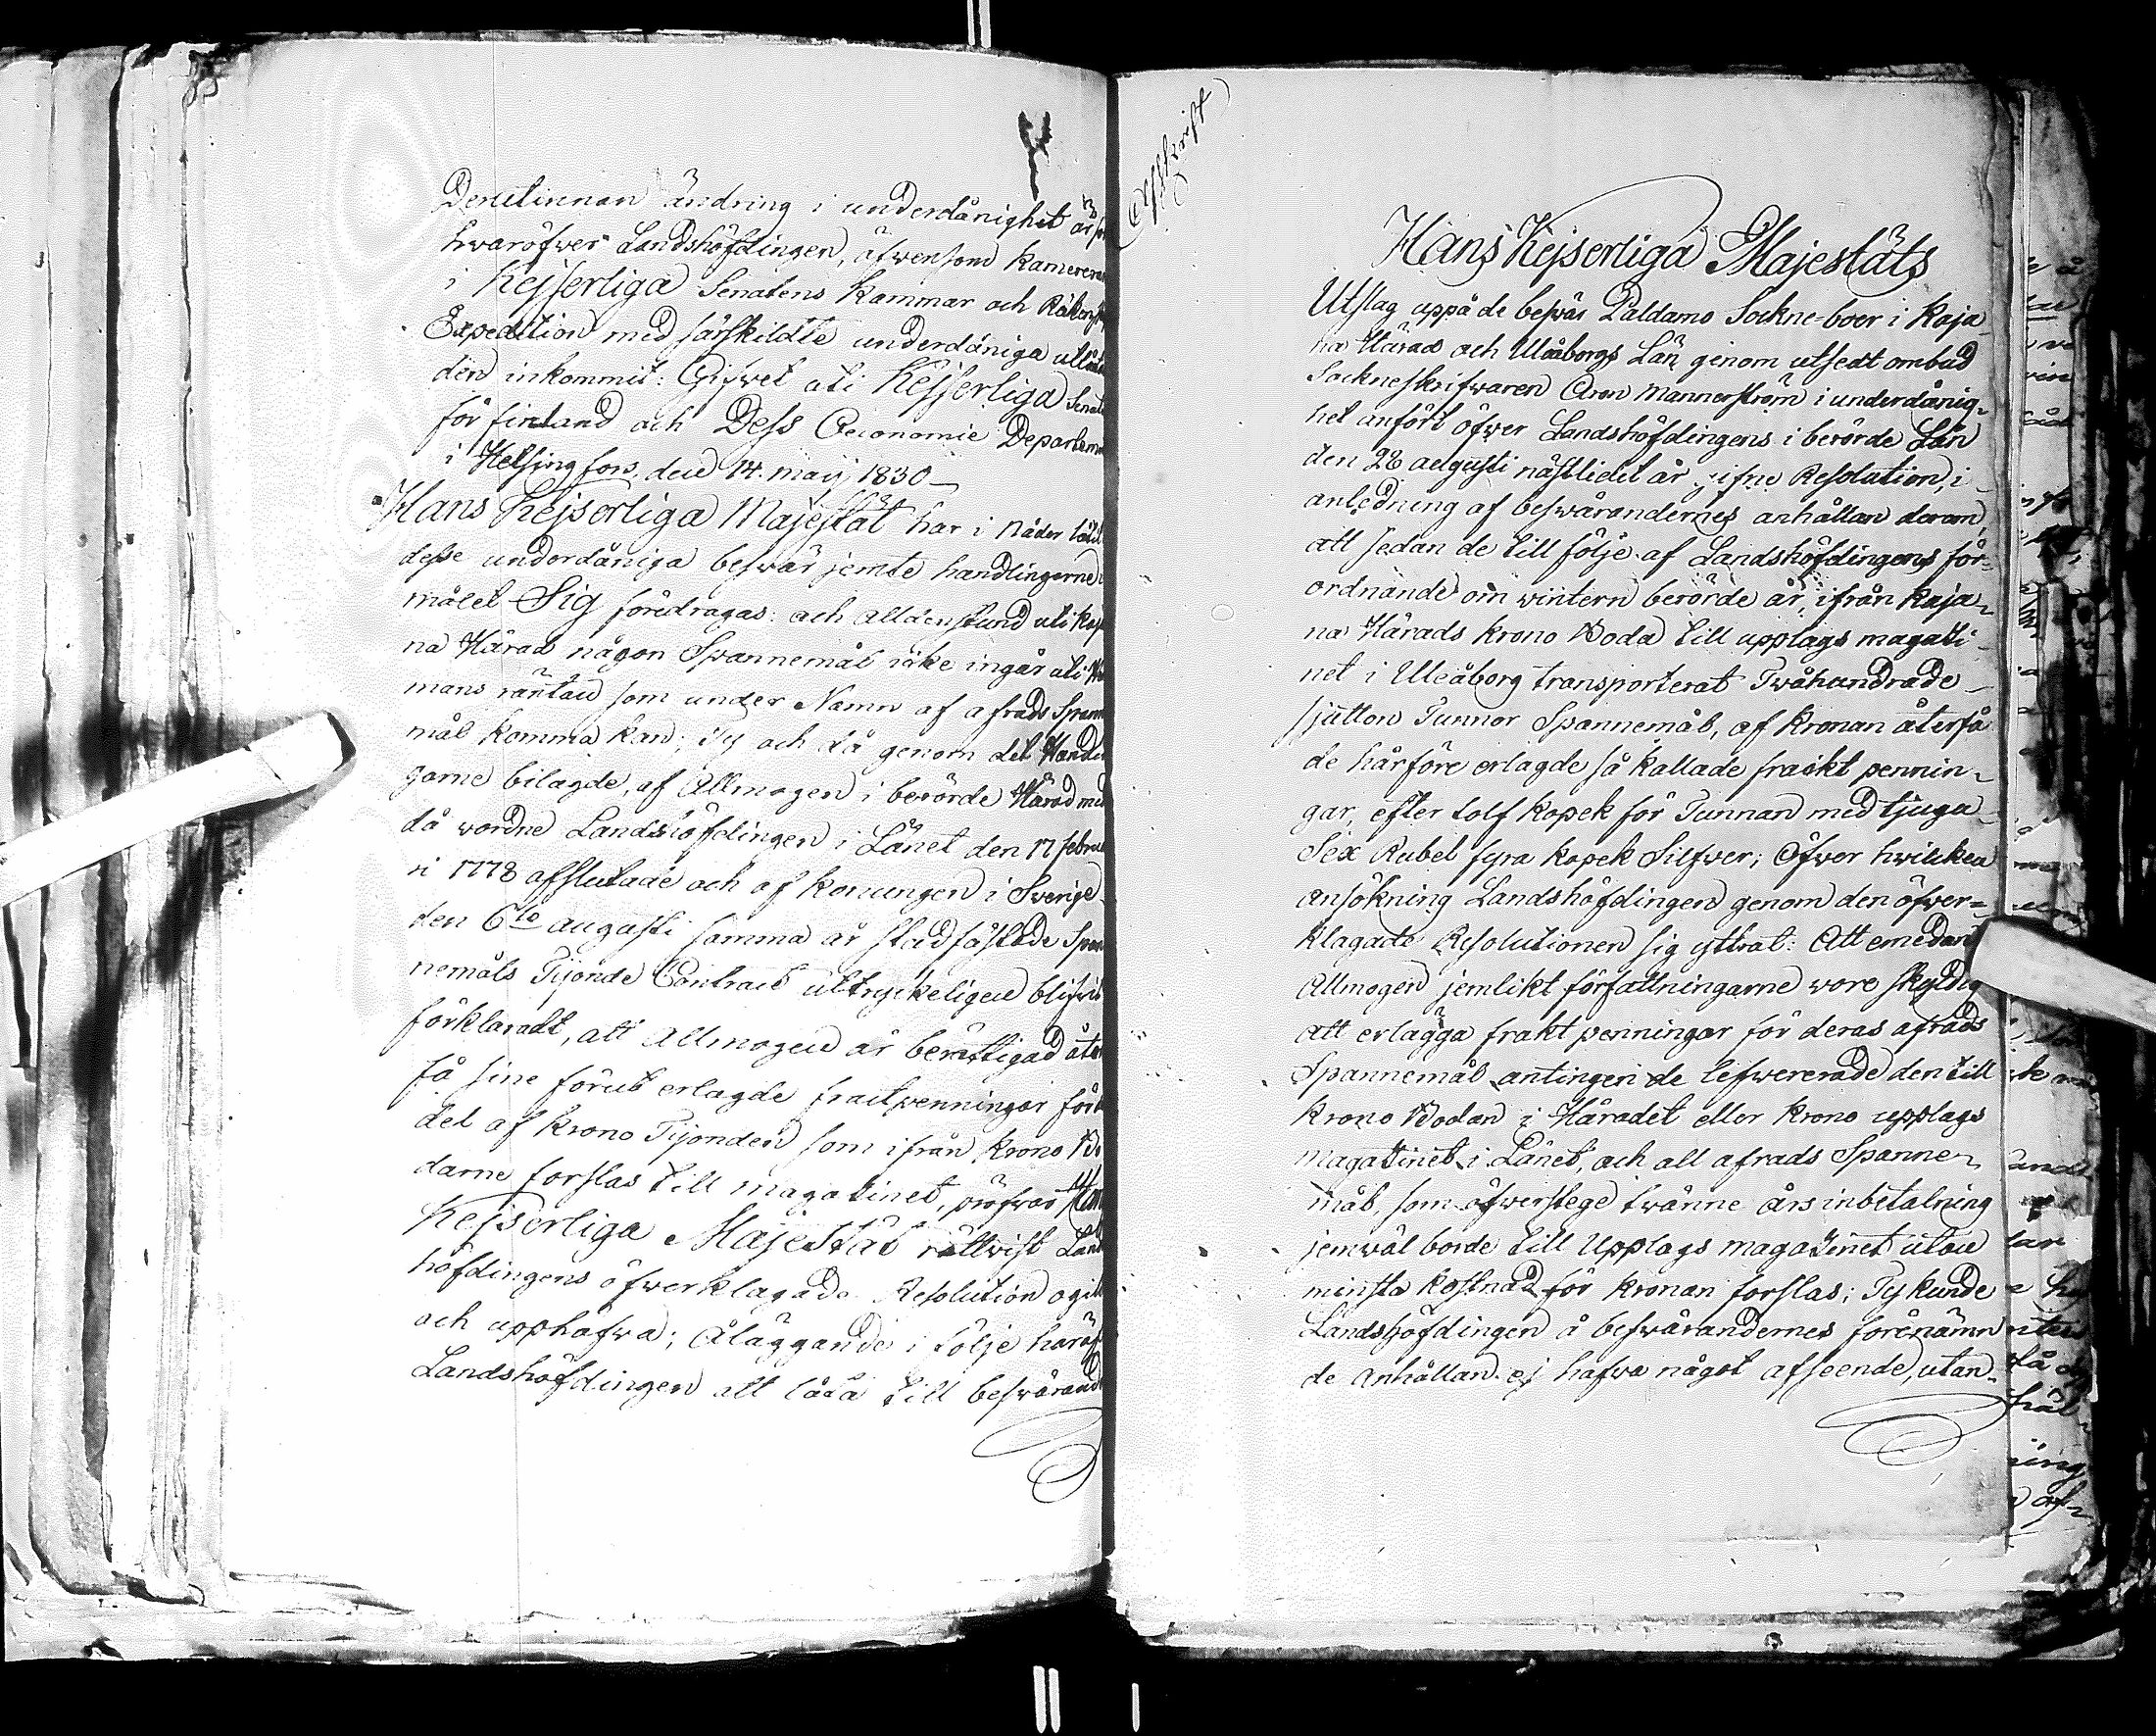 Derutinnan ändring i underdånighet är
hwaröfwer Landshöfdingen, äfwensom Kamerera
i Kejserliga Senatens Kammar och Räken
Expedition med särskildte underdåniga utlå
den inkommit: Gifwet uti Kejserliga Senat
för Finland och Dess Oeconomie Departem
i Helsingfors, den 14. Maij 1830
Hans Kejserliga Majestät har i Nåder
desse underdåniga beswär jemte handlingarne i
målet Sig föredragas: och alldenstund uti Kaja
na Härad någon Spannemål icke ingår uti
mans räntan som under Namn af afrads Spann
mål komma kan; Ty och då genom det Handlin
garne bilagde, af Allmogen i berörde Härad med
då wordne Landshöfdingen i Länet den 17 Febru
ri 1778 afslutade och af Konungen i Sverige
den 6te augusti samma år stadfästade Span
nemåls Tijonde Contract uttryckeligen blifwit
förklaradt, att Allmogen är berättigad åter
få sine förut erlagde fraktpenningar för
del af Krono Tijonden som ifrån Krono Bo
darne forslas till magazinet, pröfwar Hans
Kejserliga Majestät rättwist Land
höfdingens öfwerklagade Resolution ogil
och upphäfwa; Åläggande i följe häraf
Landshöfdingen att låta till beswärand
Afskrift
Hans Kejserliga Majestäts
Utslag uppå de beswär Paldamo Sockne-boer i Kaja
na Härad och Uleåborgs Län genom utsedt ombud
Sockneskrifwaren Aron Mannerström i underdånig-
het anfört öfwer Landshöfdingens i berörde Län
den 28 augusti nästlidet år gifne Resolution, i
anledning af beswärandernes anhållan derom,
att sedan de till följe af Landshöfdingens för-
ordnande om wintern berörde år, ifrån Kaja-
na Härads Krono Boda till upplags magazi-
net i Uleåborg transporterat Twåhundrade
sjutton Tunnor Spannemål, af Kronan återfå
de härföre erlagde så kallade frackt pennin-
gar, efter tolf kopek för Tunnan med tjugu
Sex Rubel fyra kopek Silfwer; Öfwer hwilken
ansökning Landshöfdingen genom den öfwer-
klagade Resolutionen sig yttrat: Att emedan
Allmogen jemlikt författningarne wore skyldig
att erlägga frakt penningar för deras afrads
Spannemål antingen de lefwererade den till
Krono Bodan i Häradet eller Krono upplags
magazinet i Länet, och all afrads Spanne-
mål, som öfwerstege twänne års inbetalning
jemwäl borde till Upplags magazinet utan
minsta kostnad för Kronan forslas; Ty kunde
Landshöfdingen å beswärandernes förenämn
de anhållan ej hafwa något afseende, utan